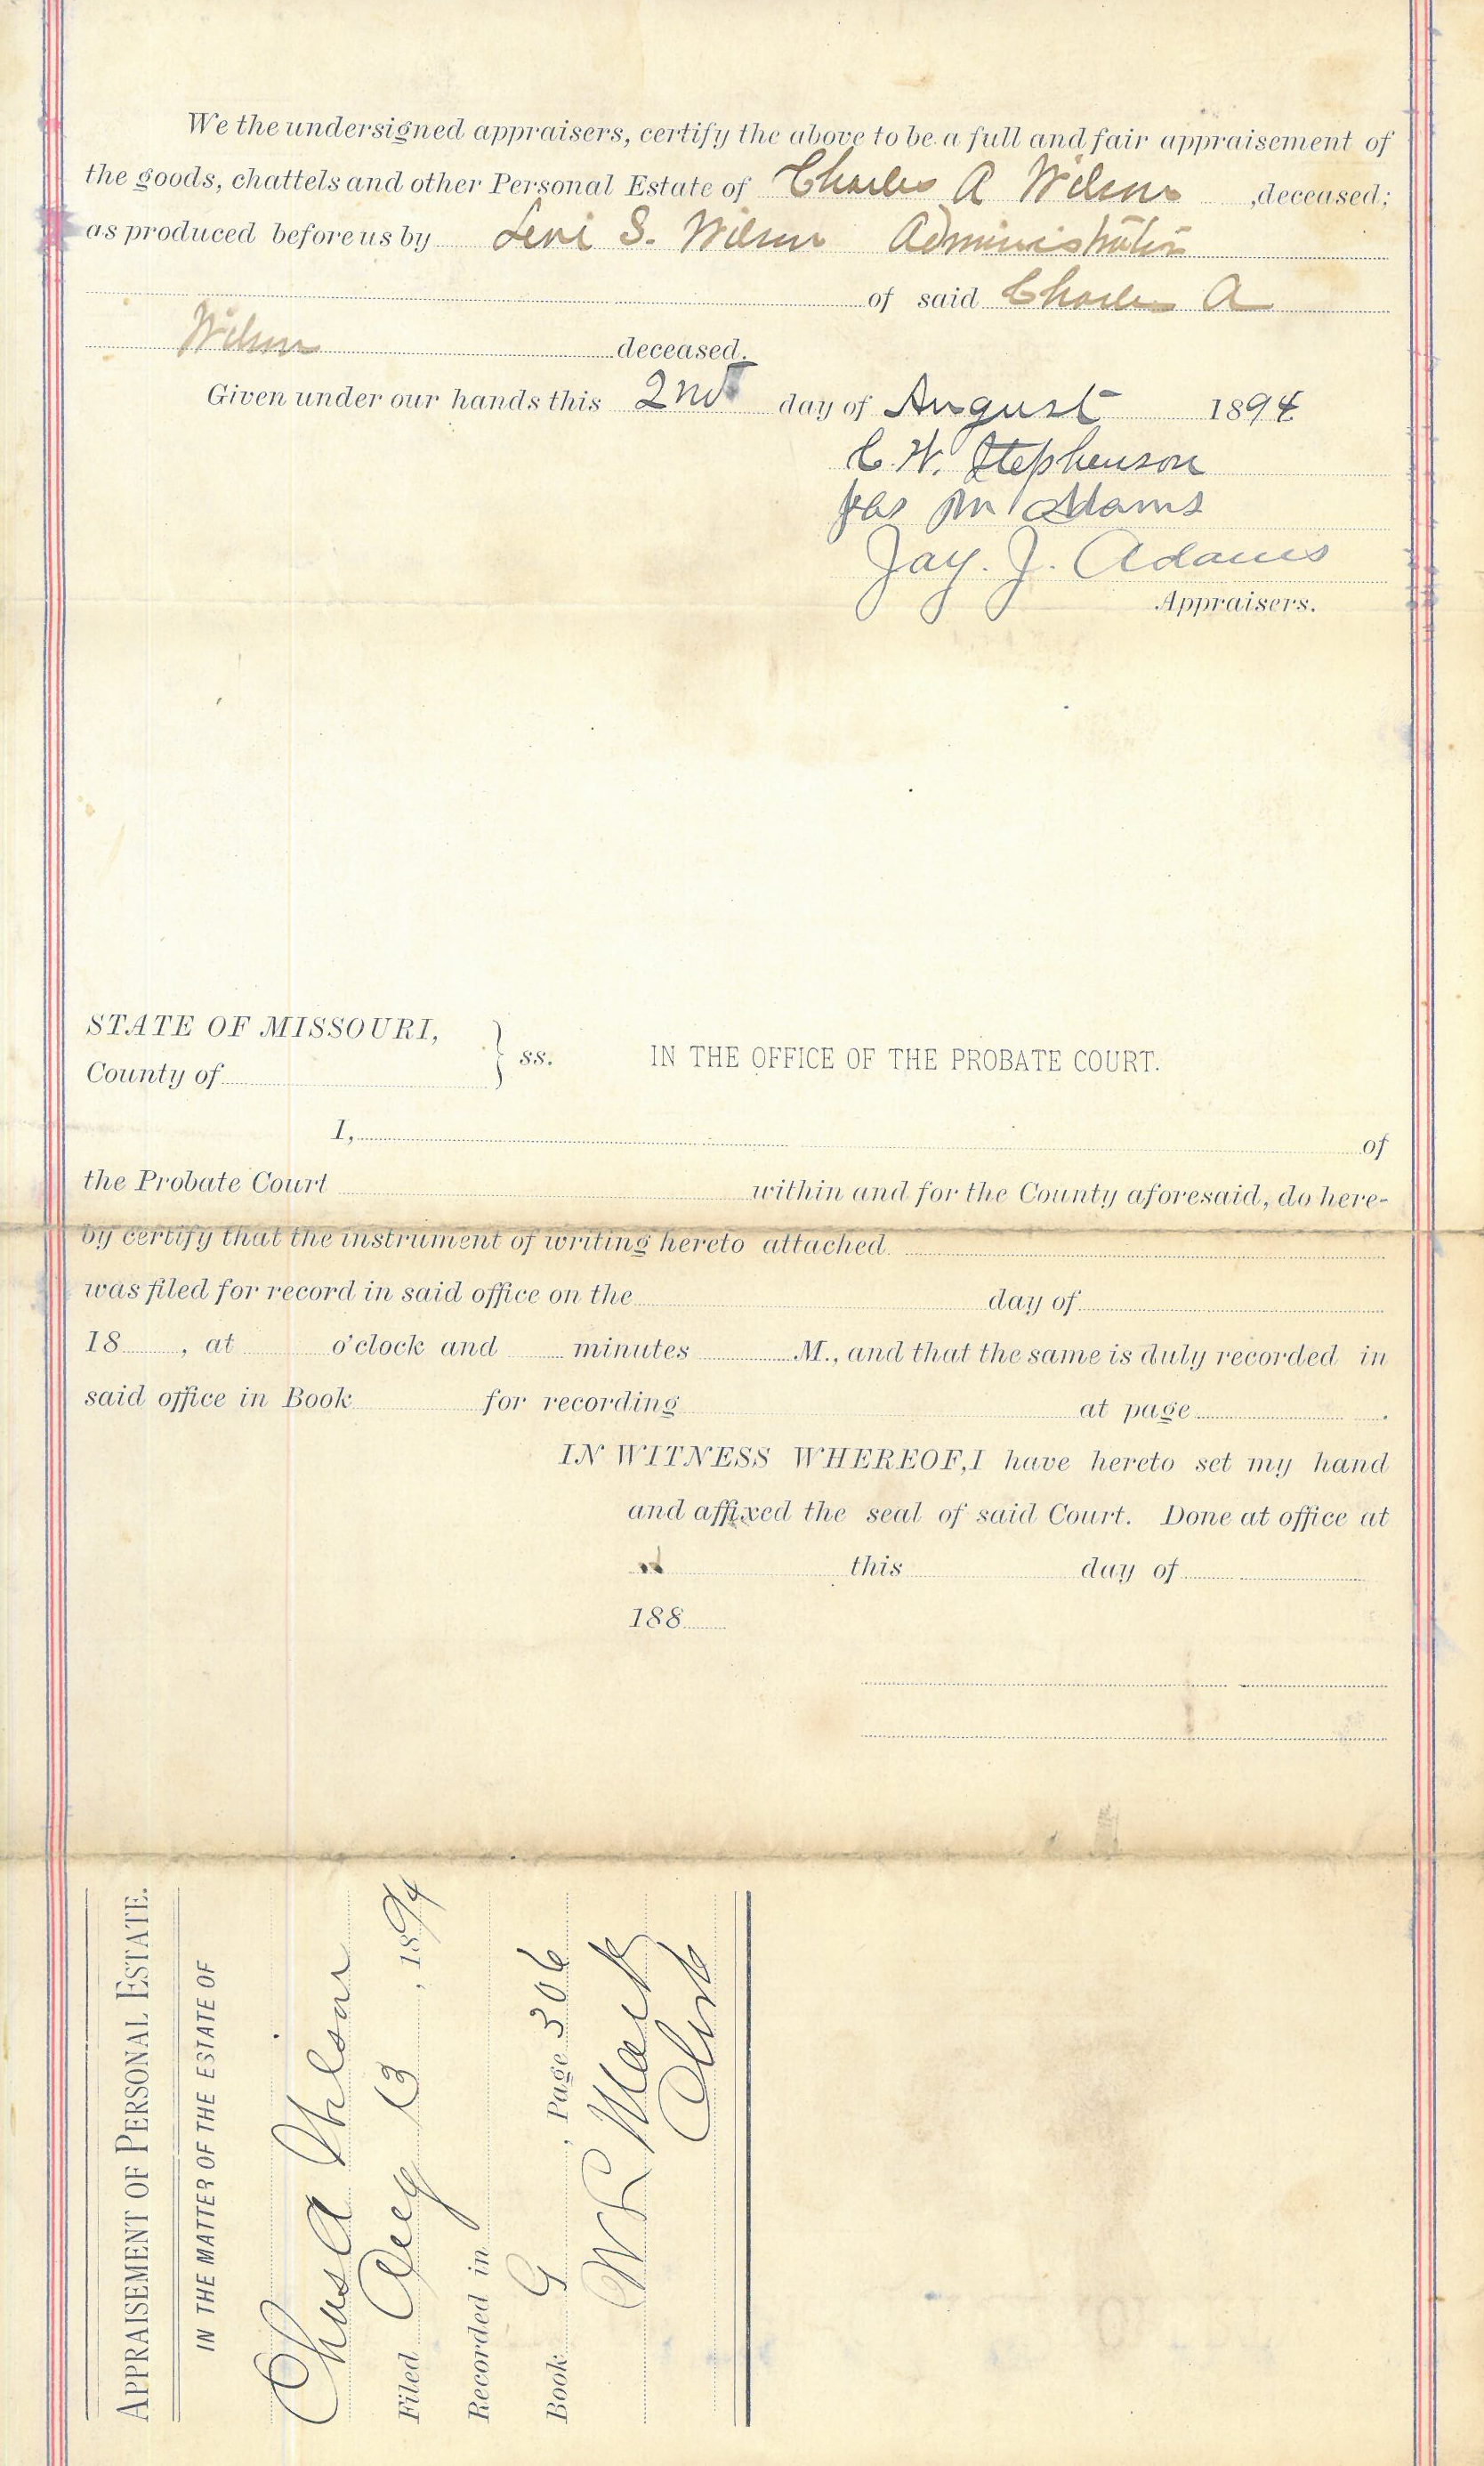 We the undersigned appraisers, certify the above to be a full and fair appraisement of
the goods, chattels and other Personal Estate of Charles A Wilson ,deceased;
as produced before us by Levi S. Wilson Administrator
of said Charles A
Wilson deceased.
Given under our hands this 2nd day of August 1894
C. W. Stephenson
Jas M Adams
Jay. J. Adams
Appraisers.
STATE OF MISSOURI,
County of } ss. IN THE OFFICE OF THE PROBATE COURT.
I, of
the Probate Court within and for the County aforesaid, do here-
by certify that the instrument of writing hereto attached
was filed for record in said office on the day of
18 , at o'clock and minutes M., and that the same is duly recorded in
said office in Book for recording at page .
IN WITNESS WHEREOF, I have hereto set my hand
and affixed the seal of said Court. Done at office at
this day of
188
APPRAISEMENT OF PERSONAL ESTATE.
IN THE MATTER OF THE ESTATE OF
Chas A Wilson
Filed Aug 13 , 1894
Recorded in
Book G , Page 306
W L
Clerk